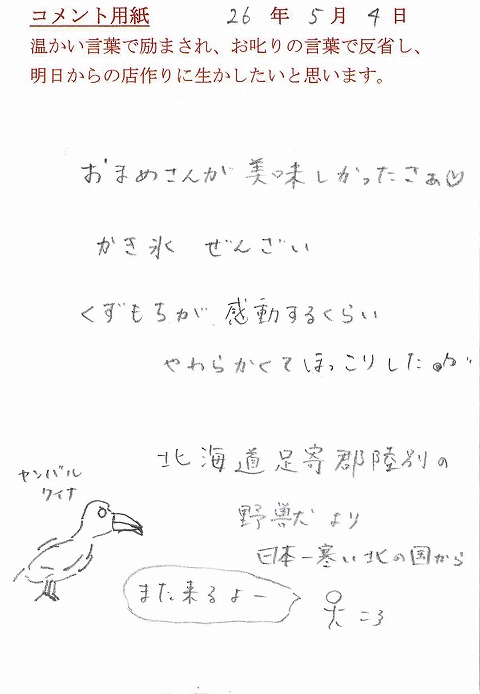 コメント用紙 26 年 5 月 4 日
温かい言葉で励まされ、お叱りの言葉で反省し、
明日からの店作りに生かしたいと思います。
おまめさんが 美味しかったさぁ♡
かき氷 ぜんざい
くずもちが 感動するくらい
やわらかくて ほっこりした
北海道足寄郡陸別の
野獣犬 より
日本一寒い北の国から
ヤンバル
クイナ
また来るよー